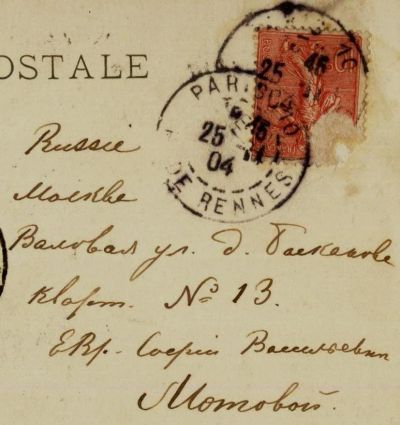 POSTALE
PARIS
25
04
DE RENNES
Russie
Москве
Валовая ул. д. Баскакова
Кварт. № 13.
ЕВр. Софіи Васильевне
Мотовой.